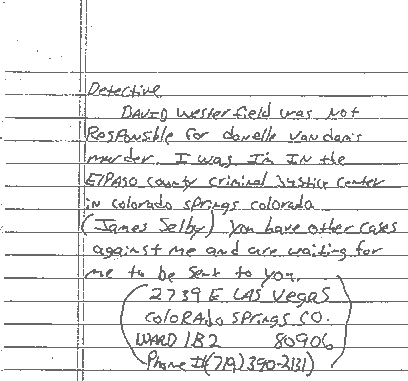 Detective
DAVID westerfield was Not
Responsible for danelle Van dam's
murder. I was. I'm IN the
ElPASO county criminal Justice center
in colorado springs colorado
(James Selby) you have other cases
against me and are waiting for
me to be sent to you.
2739 E LAS VegaS
COLORADO SPRINGS CO.
WARD 1B2 80906
Phone #(719) 390-2131)